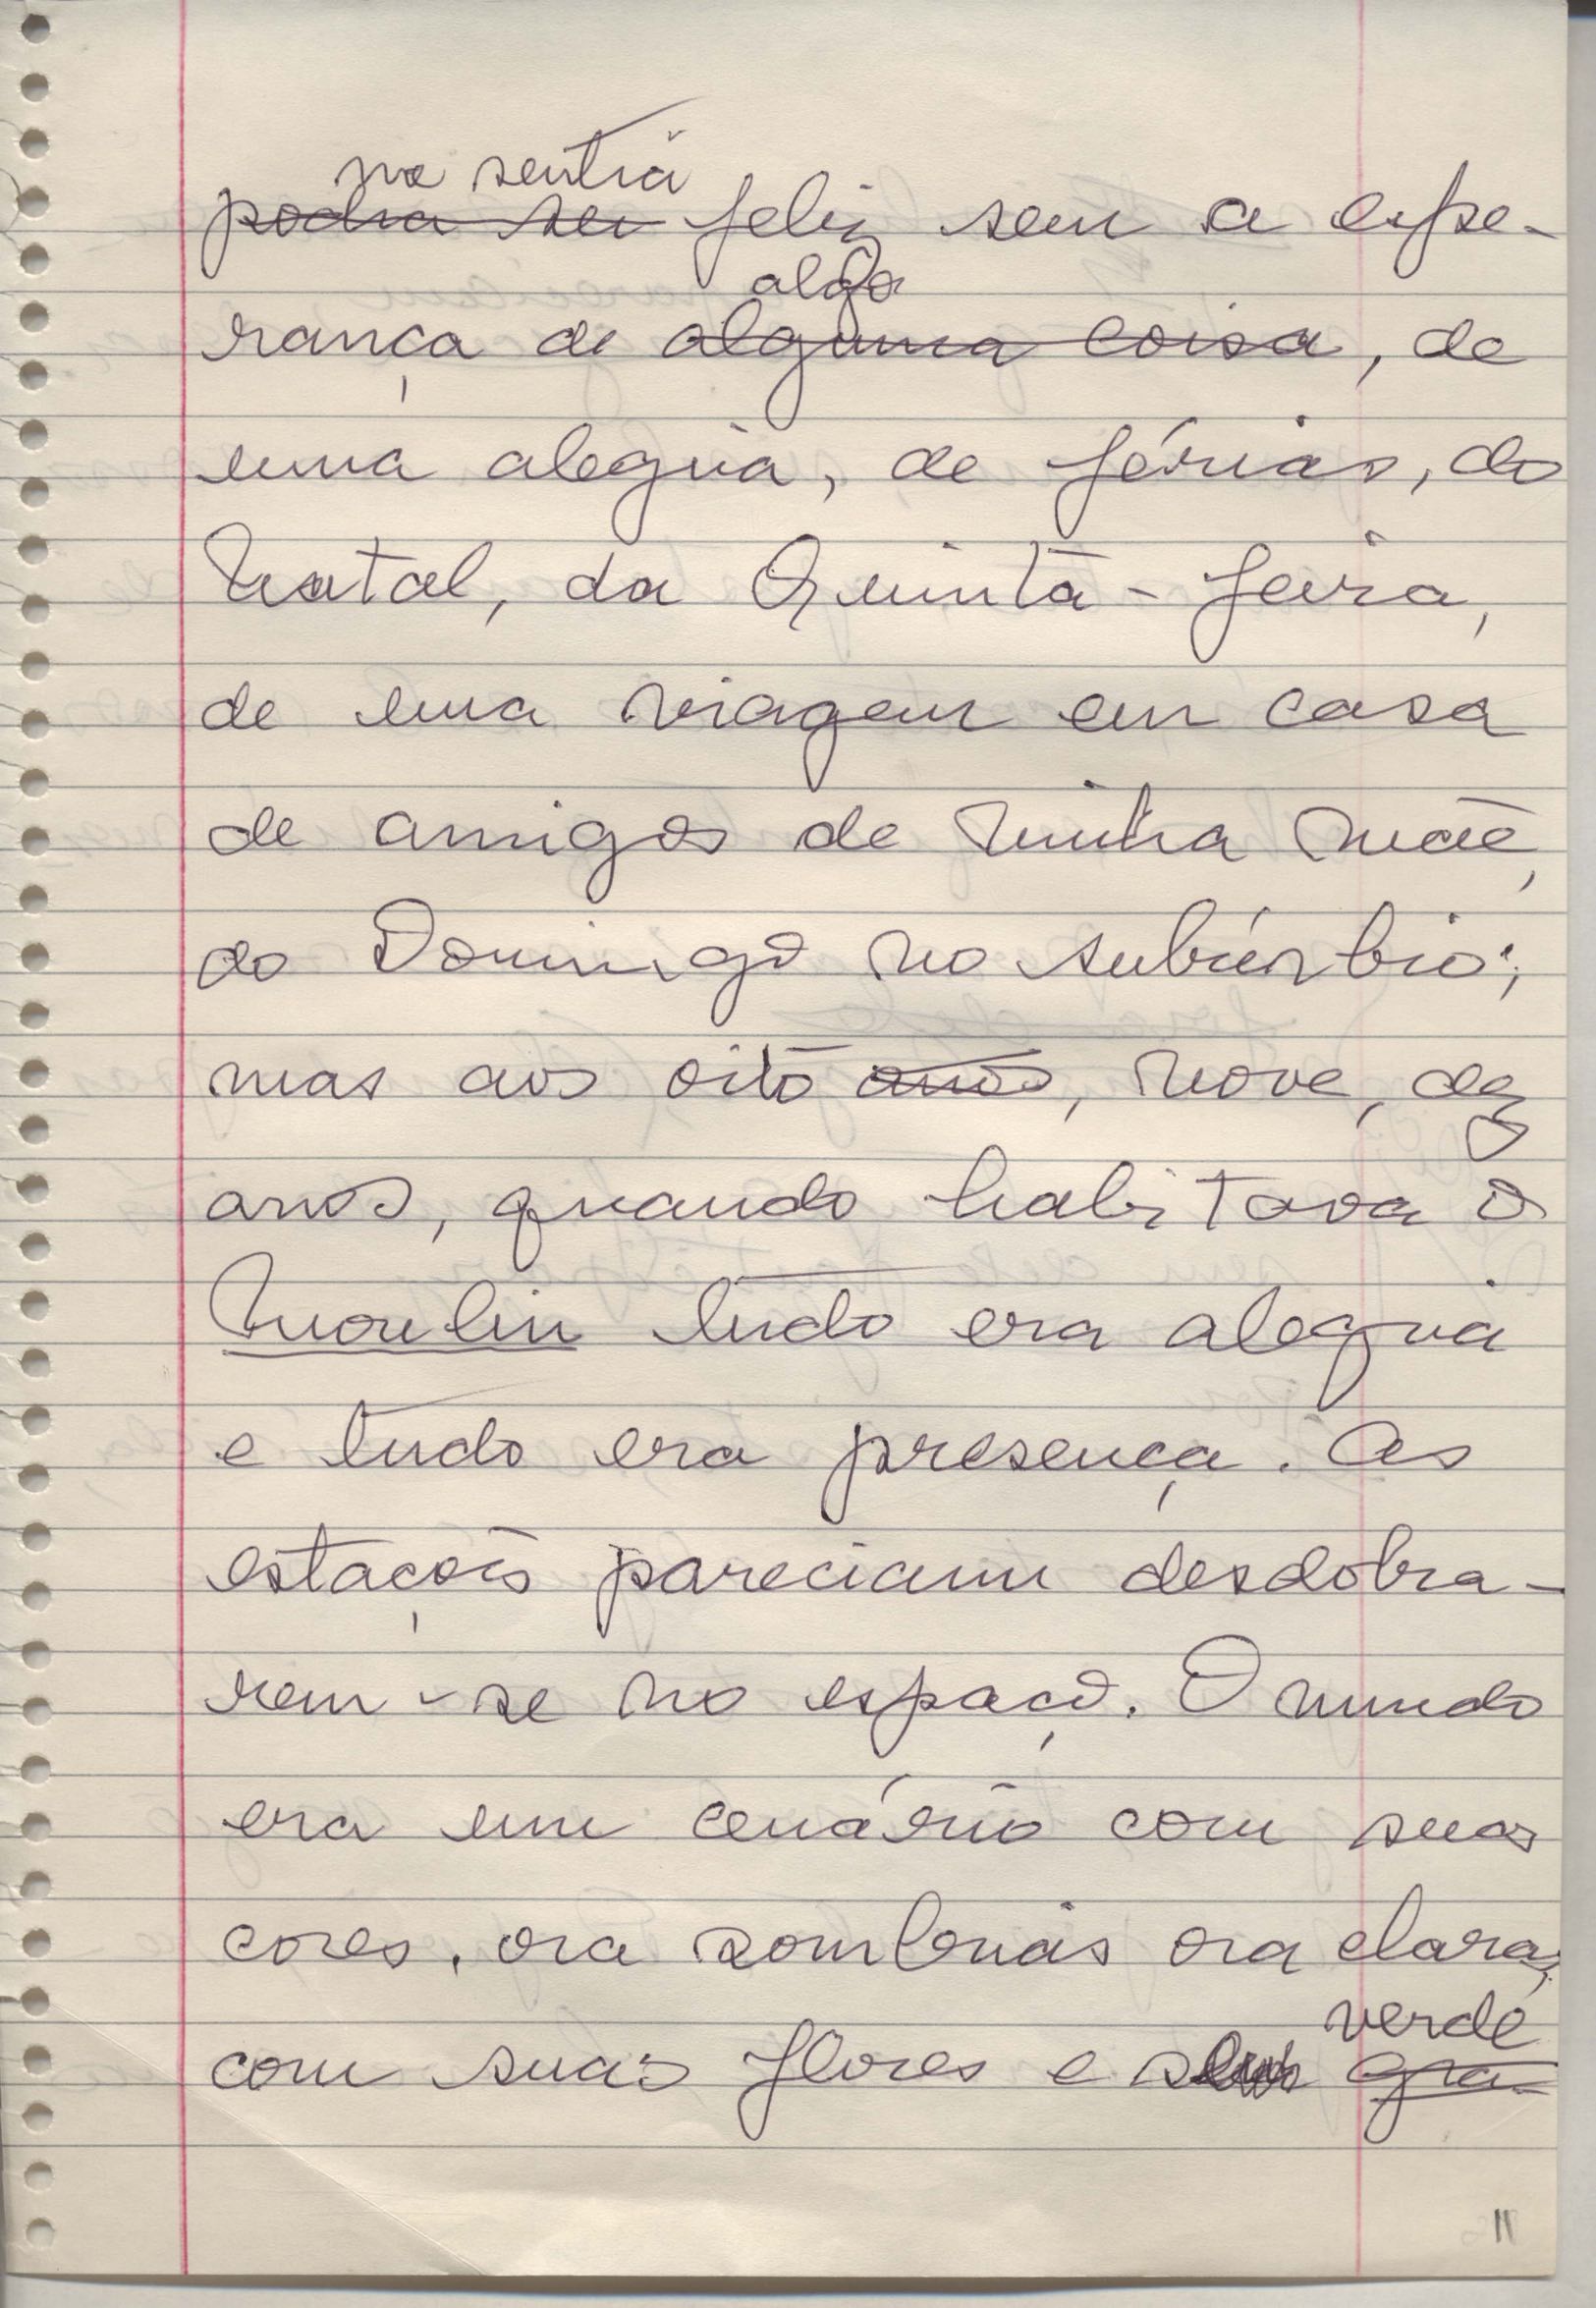 me sentia
podia ser feliz sem a espe-
algo
rança de alguma coisa, de
uma alegria, de férias, do
Natal, da Quinta-feira,
de uma viagem em casa
de amigos de minha mãe,
do Domingo no subúrbio;
mas aos oito anos, nove, dez
anos, quando habitava o
Moulin tudo era alegria
e tudo era presença. As
estações pareciam desdobra-
rem-se no espaço. O mundo
era um cenário com suas
cores, ora sombrias ora claras,
verde
com suas flores e seu gra-
11